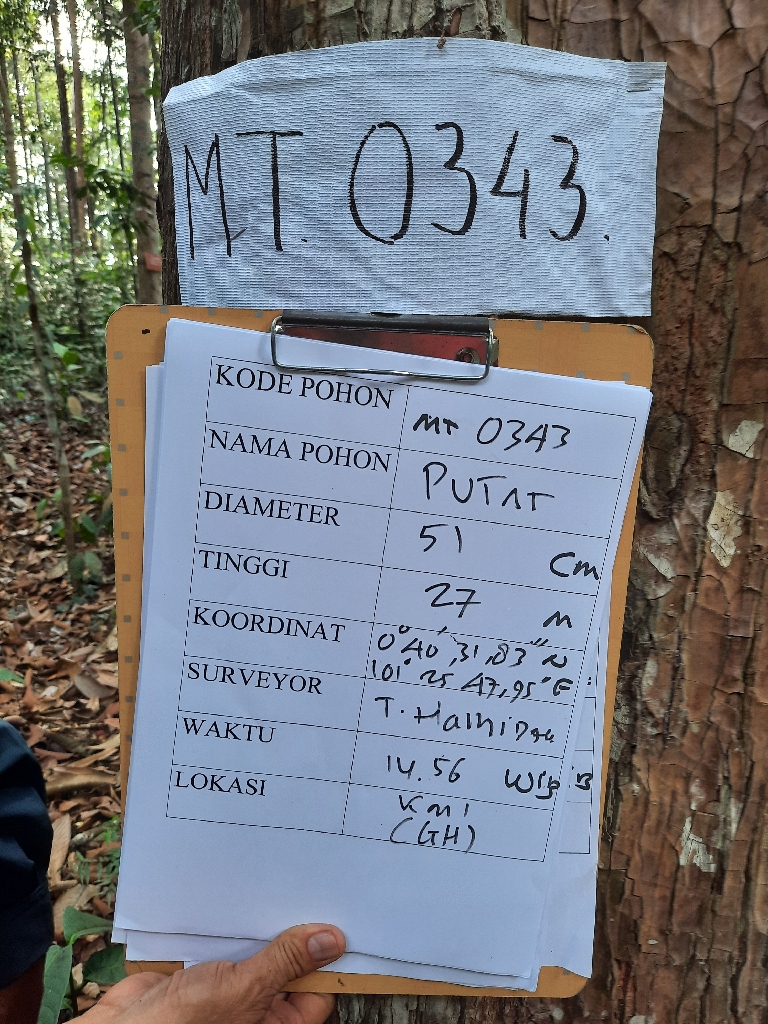 MT. 0343.
KODE POHON MT 0343
NAMA POHON PUTAT
DIAMETER 51 Cm
TINGGI 27 m
KOORDINAT 0° 40', 31, 83" N
101° 25' 47,95" E
SURVEYOR T.
WAKTU 14.56 WIB
LOKASI KMI
(GH)